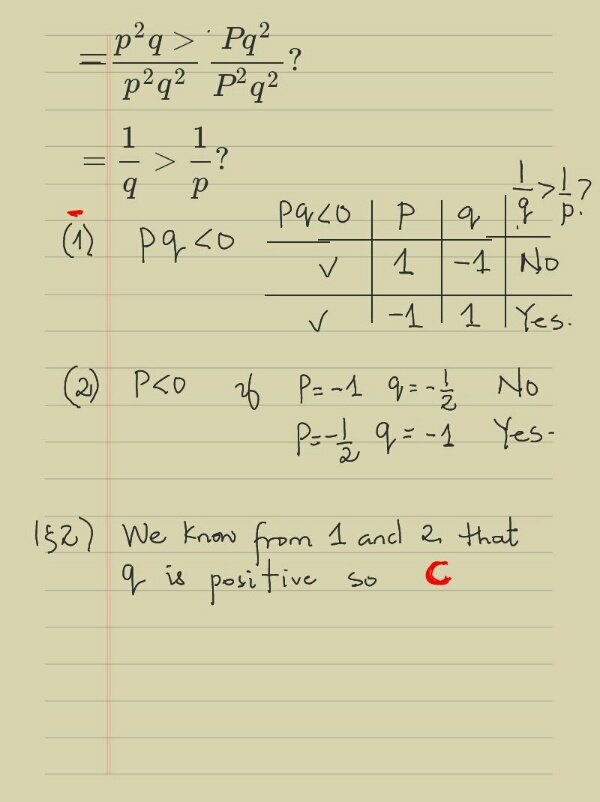 = p²q > / p²q² Pq² / P²q² ?
= 1/q > 1/p ?
(1) pq<0
pq<0 | p | q | 1/q > 1/p ?
√ | 1 | -1 | No
√ | -1 | 1 | Yes.
(2) P<0 if P=-1 q=-1/2 No
P=-1/2 q=-1 Yes-
1§2) We know from 1 and 2 that
q is positive so C